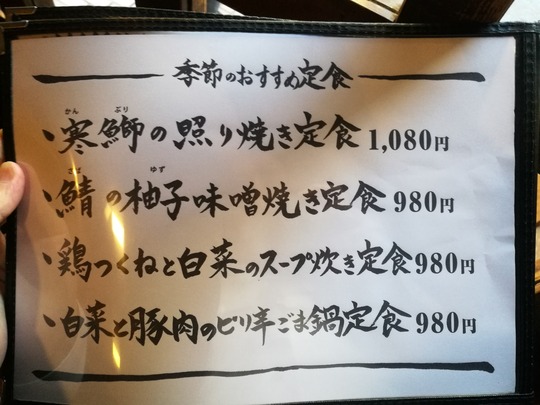 季節のおすすめ定食
かん ぶり
・寒鰤の照り焼き定食 1,080円
さば ゆず
・鯖の柚子味噌焼き定食 980円
・鶏つくねと白菜のスープ炊き定食 980円
・白菜と豚肉のピリ辛ごま鍋定食 980円